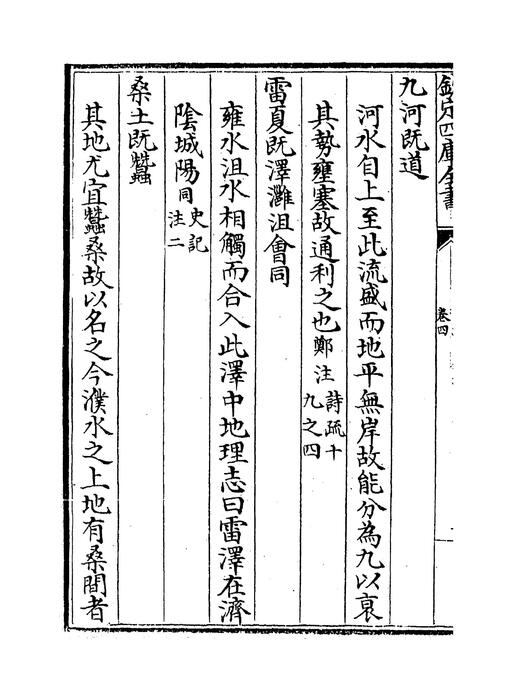 欽定四庫全書
卷四
九河既道
河水自上至此流盛而地平無岸故能分為九以衰
其勢壅塞故通利之也鄭注詩疏十九之四
雷夏既澤灉沮會同
雍水沮水相觸而合入此澤中地理志曰雷澤在濟
陰城陽同史記注二
桑土既蠶
其地尤宜蠶桑故以名之今濮水之上地有桑間者